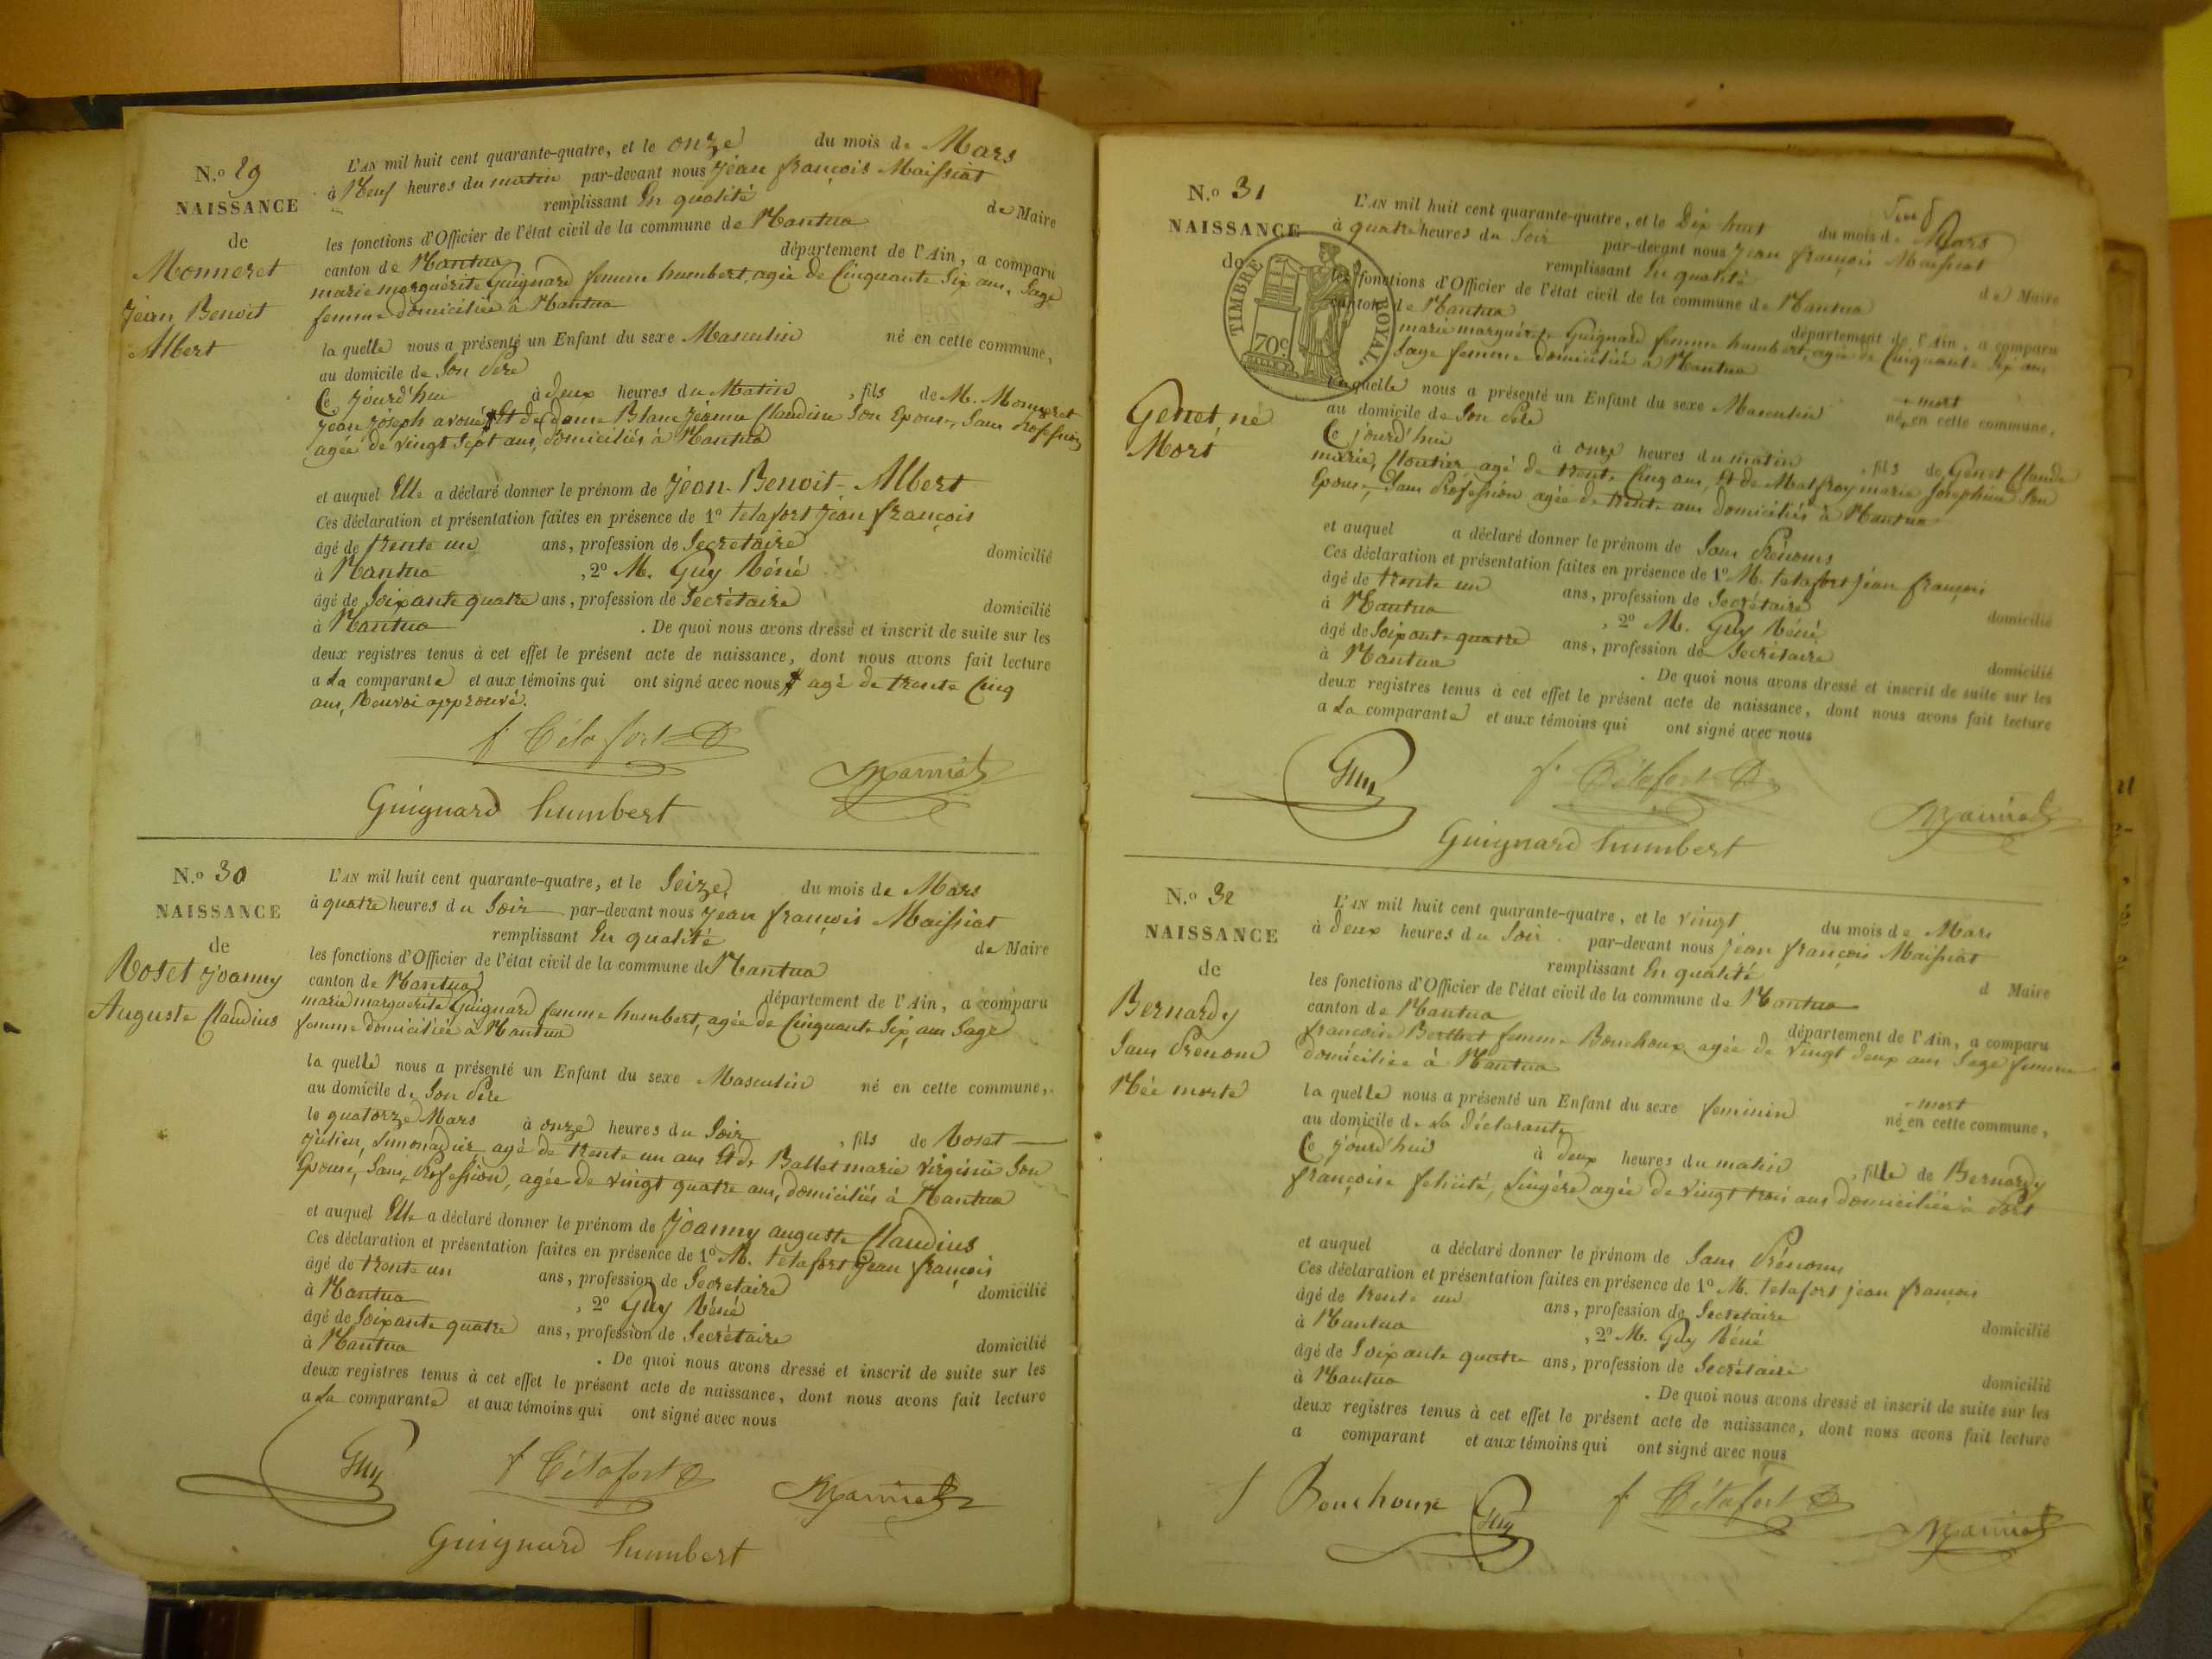 N.º 29
NAISSANCE
de
Monneret
Jean Benoit
Albert
L'AN mil huit cent quarante-quatre, et le onze du mois de Mars
à Neuf heures du matin par-devant nous Jean françois Maissiat
remplissant En qualité de Maire
les fonctions d'Officier de l'état civil de la commune de Nantua
canton de Nantua département de l'Ain, a comparu
marie marguérite Guignard femme humbert, agée de Cinquante Six ans, Sage
femme domiciliée à Nantua
la quelle nous a présenté un Enfant du sexe Masculin né en cette commune,
au domicile de Son Père
Ce jourd'hui à deux heures du Matin, fils de M. Monneret
Jean Joseph avoué Et de dame Blanc Jeanne Claudine Son Epouse, Sans Profession
agée de vingt Sept ans, domiciliés à Nantua
et auquel Elle a déclaré donner le prénom de Jean-Benoit-Albert
Ces déclaration et présentation faites en présence de 1º telafort Jean françois
âgé de trente un ans, profession de Secrétaire domicilié
à Nantua, 2º M. Guy Réné
âgé de Soixante quatre ans, profession de Secrétaire domicilié
à Nantua. De quoi nous avons dressé et inscrit de suite sur les
deux registres tenus à cet effet le présent acte de naissance, dont nous avons fait lecture
a La comparante et aux témoins qui ont signé avec nous agé de trente Cinq
ans, Renvoi approuvé.
f. Télafort
Guignard humbert
N.º 30
NAISSANCE
de
Roset Joanny
Auguste Claudius
L'AN mil huit cent quarante-quatre, et le Seize du mois de Mars
à quatre heures du Soir par-devant nous Jean françois Maissiat
remplissant En qualité de Maire
les fonctions d'Officier de l'état civil de la commune de Nantua
canton de Nantua département de l'Ain, a comparu
marie marguerite Guignard femme humbert, agée de Cinquante Six ans Sage
femme domiciliée à Nantua
la quelle nous a présenté un Enfant du sexe Masculin né en cette commune,
au domicile de Son Père
le quatorze Mars à onze heures du Soir, fils de Roset
julien, Limonadier agé de trente un ans Et de Ballet marie Virginie Son
Epouse, Sans Profession, agée de vingt quatre ans, domiciliés à Nantua
et auquel Elle a déclaré donner le prénom de Joanny auguste Claudius
Ces déclaration et présentation faites en présence de 1º M. telafort Jean françois
âgé de trente un ans, profession de Secretaire domicilié
à Nantua, 2º Guy Réné
âgé de Soixante quatre ans, profession de Secrétaire domicilié
à Nantua. De quoi nous avons dressé et inscrit de suite sur les
deux registres tenus à cet effet le présent acte de naissance, dont nous avons fait lecture
a La comparante et aux témoins qui ont signé avec nous
Guy f Télafort
Guignard humbert
N.º 31
NAISSANCE
de
TIMBRE ROYAL
70c
Genet, né
Mort
L'AN mil huit cent quarante-quatre, et le Dix huit du mois de Mars
à quatre heures du Soir par-devant nous Jean françois Maissiat
remplissant En qualité de Maire
les fonctions d'Officier de l'état civil de la commune de Nantua
canton de Nantua département de l'Ain, a comparu
marie marguérite Guignard femme humbert, agée de Cinquante Six ans
Sage femme domiciliée à Nantua
laquelle nous a présenté un Enfant du sexe Masculin mort né, en cette commune,
au domicile de Son Père
Ce jourd'hui à onze heures du matin, fils de Genet Claude
marie, Cloutier agé de trente Cinq ans, Et de Malfroy marie Josephine Son
Epouse, Sans Profession agée de trente ans domiciliés à Nantua
et auquel a déclaré donner le prénom de Sans Prénoms
Ces déclaration et présentation faites en présence de 1º M. telafort Jean françois
âgé de trente un ans, profession de Secrétaire domicilié
à Nantua, 2º M. Guy Réné
âgé de Soixante quatre ans, profession de Secrétaire domicilié
à Nantua. De quoi nous avons dressé et inscrit de suite sur les
deux registres tenus à cet effet le présent acte de naissance, dont nous avons fait lecture
a La comparante et aux témoins qui ont signé avec nous
Guy f. Télafort
Guignard humbert
N.º 32
NAISSANCE
de
Bernardy
Sans Prenom
Née morte
L'AN mil huit cent quarante-quatre, et le vingt du mois de Mars
à deux heures du Soir par-devant nous Jean françois Maissiat
remplissant En qualité d Maire
les fonctions d'Officier de l'état civil de la commune de Nantua
canton de Nantua département de l'Ain, a comparu
francoise Berthet femme Bouchoux agée de vingt deux ans Sage femme
domiciliée à Nantua
la quelle nous a présenté un Enfant du sexe feminin mort né en cette commune,
au domicile de La Déclarante
Ce jourd'hui à deux heures du matin, fille de Bernardy
françoise felicité, Lingère agée de vingt trois ans domiciliée à Port
et auquel a déclaré donner le prénom de Sans Prénoms
Ces déclaration et présentation faites en présence de 1º M. telafort jean francois
âgé de trente un ans, profession de Secretaire domicilié
à Nantua, 2º M. Guy Réné
âgé de Soixante quatre ans, profession de Secrétaire domicilié
à Nantua. De quoi nous avons dressé et inscrit de suite sur les
deux registres tenus à cet effet le présent acte de naissance, dont nous avons fait lecture
a comparant et aux témoins qui ont signé avec nous
f Bouchoux Guy f. Télafort